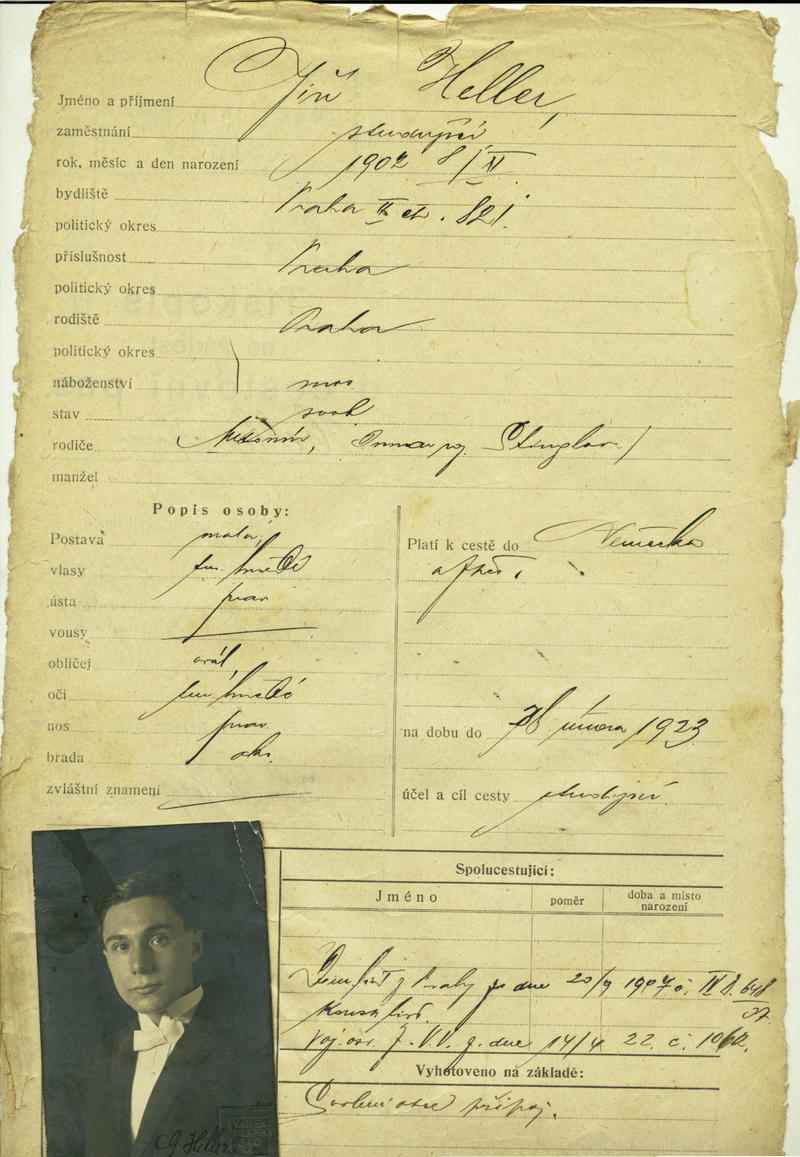 Jméno a příjmení Jiří Heller,
zaměstnání studující
rok, měsíc a den narození 1902 8/XI
bydliště Praha II čp. 821
politický okres
příslušnost Praha
politický okres
rodiště Praha
politický okres
náboženství mos
stav svob
rodiče Anna roz.
manžel
Popis osoby:
Postava malá
vlasy tm. hnědé
ústa prav
vousy
obličej ovál
oči tm. hnědé
nos prav.
brada okr.
zvláštní znamení
Platí k cestě do Německa
a zpět.
na dobu do 28 února 1923
účel a cíl cesty studijní
Spolucestující:
Jméno poměr doba a místo narození
Dom. list z Prahy ze dne 20/9 1907 č. IV
voj. osv. z dne 14/4 22. č.
Vyhotoveno na základě:
Svolení otce připoj.
G. Heller